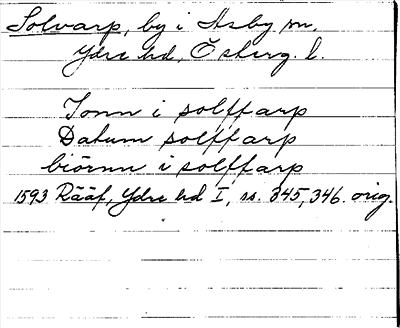 Solvarp, by i Asby sn.
Ydre hd, Österg. l.
Jonn i solffarp
Datum solffarp
biörnn i solffarp
1593 Rääf, Ydre hd I, ss. 345, 346. orig.